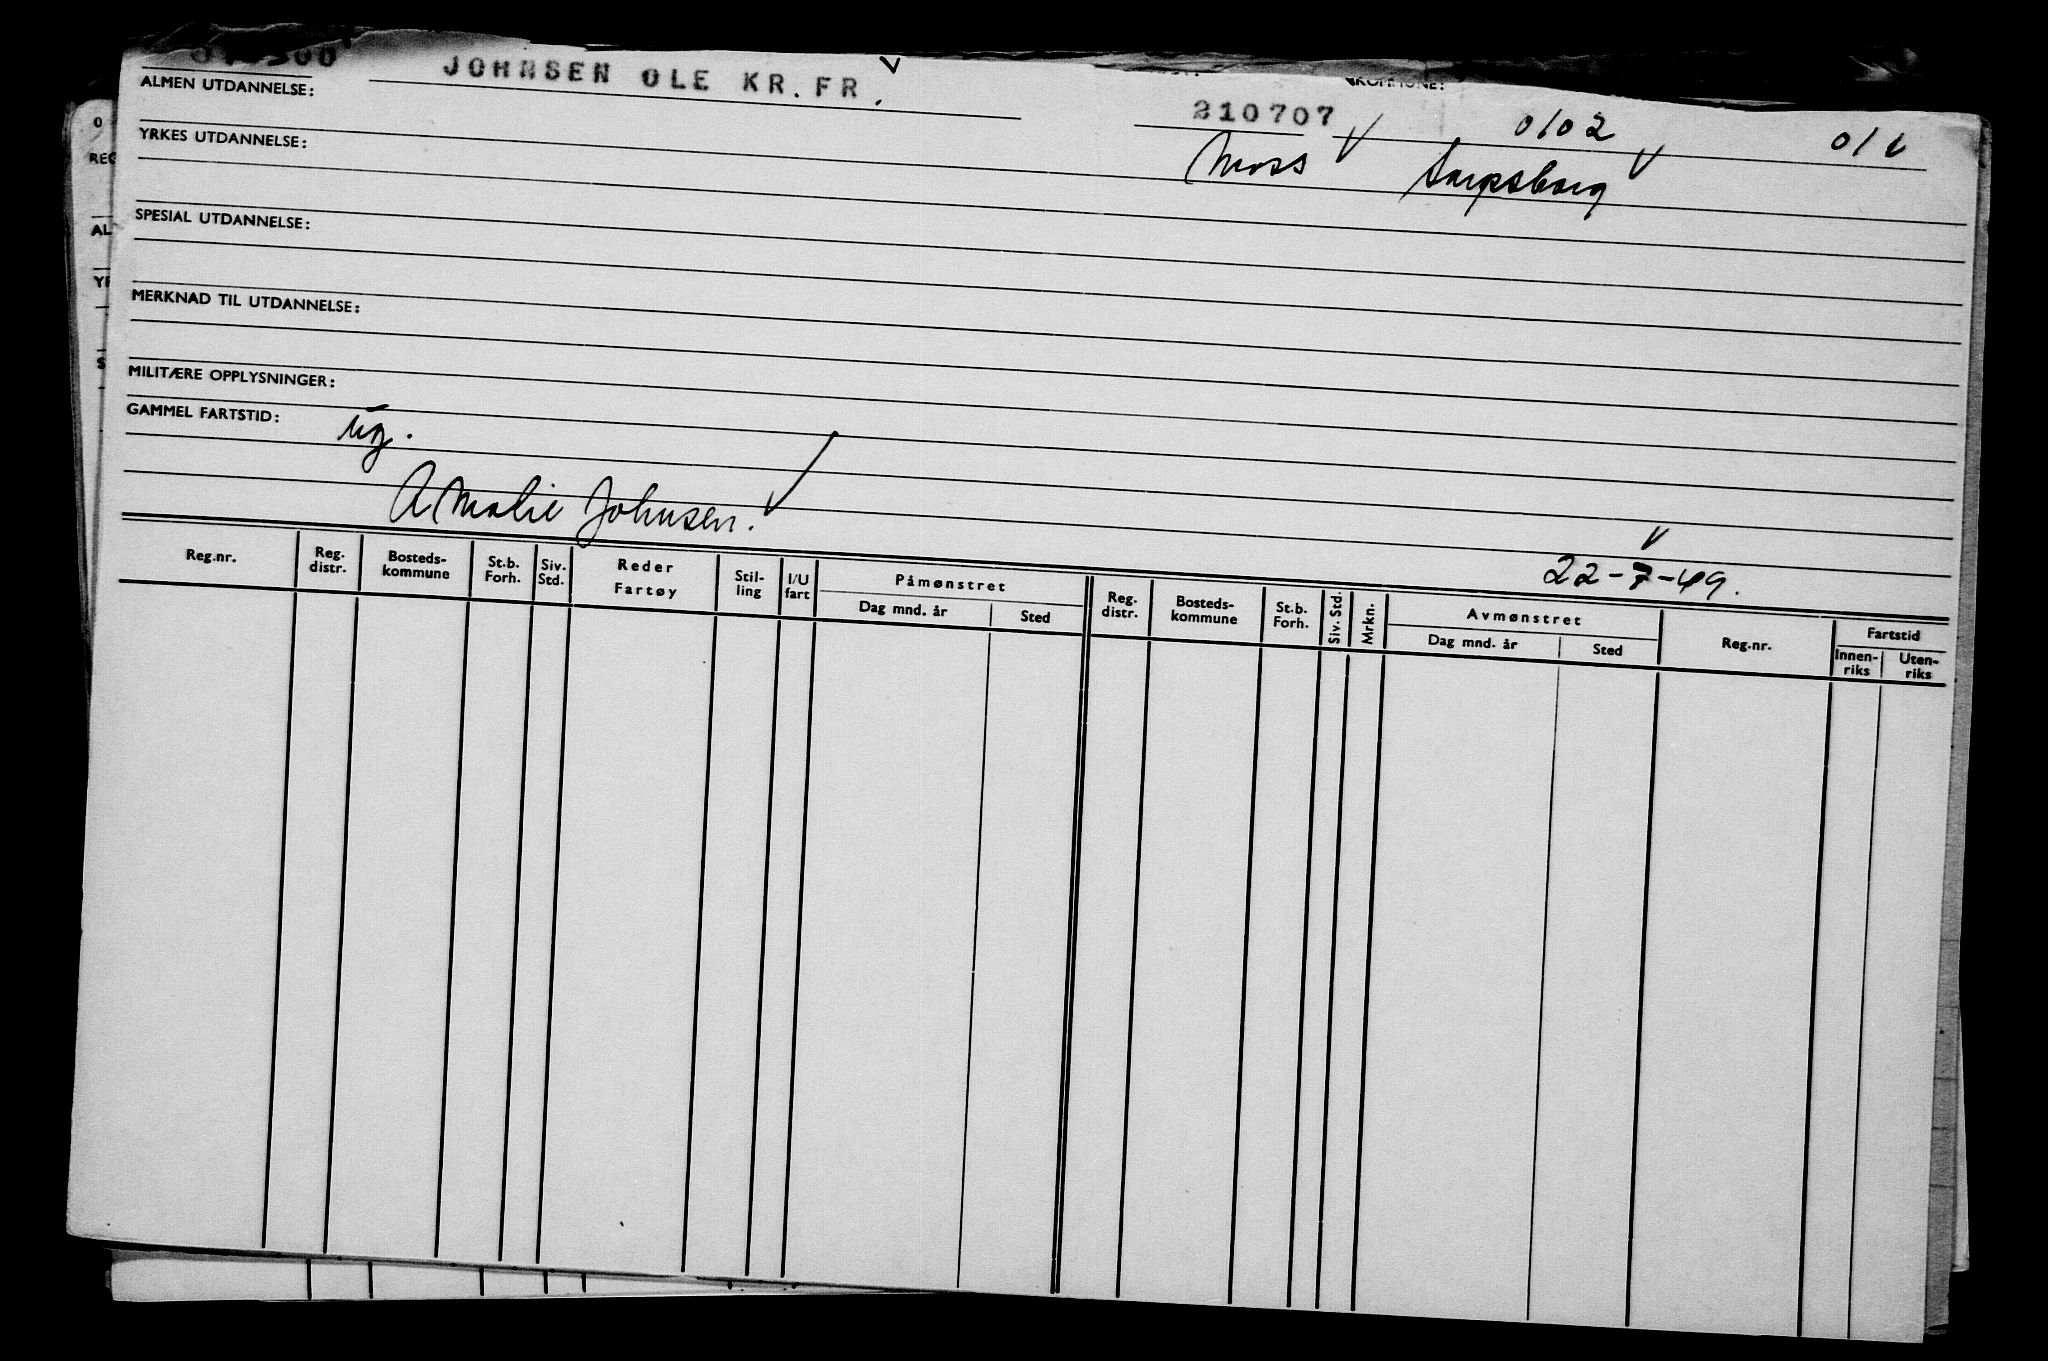 JOHNSEN OLE KR. FR.
KOMMUNE:
ALMEN UTDANNELSE:
210707 0102
YRKES UTDANNELSE:
Moss Sarpsborg
SPESIAL UTDANNELSE:
MERKNAD TIL UTDANNELSE:
MILITÆRE OPPLYSNINGER:
GAMMEL FARTSTID:
ug.
Amalie Johnsen.
22-7-49.
Reg.nr. Reg. distr. Bosteds-kommune St.b. Forh. Siv. Std. Reder Fartøy Stil-ling I/U fart Påmønstret Reg. distr. Bosteds-kommune St.b. Forh. Siv. Std. Mrkn. Avmønstret Reg.nr. Fartstid
Dag mnd. år Sted Dag mnd. år Sted Innen-riks Uten-riks